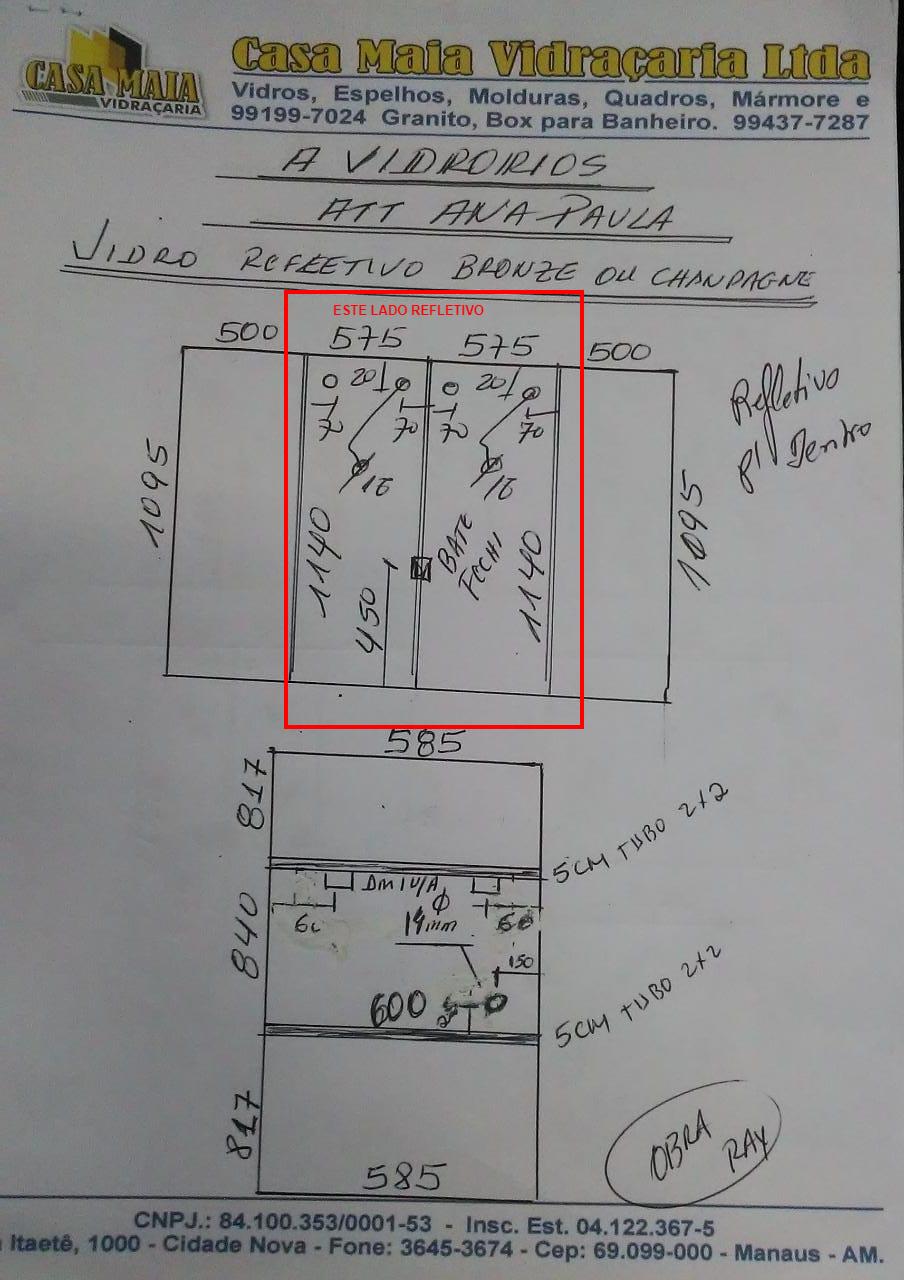 CASA MAIA
VIDRAÇARIA
Casa Maia Vidraçaria Ltda
Vidros, Espelhos, Molduras, Quadros, Mármore e
99199-7024 Granito, Box para Banheiro. 99437-7287
A VIDRORIOS
ATT ANA PAULA
VIDRO REFLETIVO BRONZE OU CHANPAGNE
ESTE LADO REFLETIVO
500 575 575 500
20 20
70 70 70 70
Refletivo
p/ Dentro
16 16
1095 1140 450 BATE
FECHI 1140 1095
585
817
5CM TUBO 2x2
DM IV/A
60 Ø
14mm 60
840
150
600
5CM TUBO 2x2
817
585
OBRA
RAY
CNPJ.: 84.100.353/0001-53 - Insc. Est. 04.122.367-5
Itaetê, 1000 - Cidade Nova - Fone: 3645-3674 - Cep: 69.099-000 - Manaus - AM.